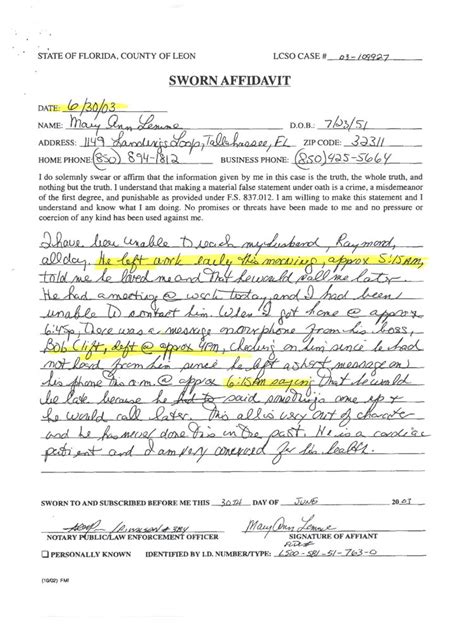 STATE OF FLORIDA, COUNTY OF LEON LCSO CASE # 03-109927
SWORN AFFIDAVIT
DATE: 6/30/03
NAME: Mary Ann Lemine D.O.B.: 7/23/51
ADDRESS: 1149 Landings Loop, Tallahassee, FL ZIP CODE: 32311
HOME PHONE: (850) 894-1812 BUSINESS PHONE: (850) 425-5664
I do solemnly swear or affirm that the information given by me in this case is the truth, the whole truth, and
nothing but the truth. I understand that making a material false statement under oath is a crime, a misdemeanor
of the first degree, and punishable as provided under F.S. 837.012. I am willing to make this statement and
understand and know what I am doing. No promises or threats have been made to me and no pressure or
coercion of any kind has been used against me.
I have been unable to reach my husband, Raymond,
all day. He left work early this morning, approx 5:15AM,
told me he loved me and that he would call me later.
He had a meeting @ work today, and I had been
unable to contact him. When I got home @ approx
6:45p, There was a message on our phone from his boss,
Bob Clift, left @ approx 4PM, checking on him since he had
not heard from him since he left a short message on
his phone this a.m. @ approx 6:15AM saying that he would
be late because he had to said something came up &
he would call later. This all is very out of character
and he has never done this in the past. He is a cardiac
patient and I am very concerned for his health.
SWORN TO AND SUBSCRIBED BEFORE ME THIS 30TH DAY OF JUNE 2003
Mary Ann Lemine
NOTARY PUBLIC/LAW ENFORCEMENT OFFICER SIGNATURE OF AFFIANT
PERSONALLY KNOWN IDENTIFIED BY I.D. NUMBER/TYPE: L500-581-51-763-0
(10/02) FMI